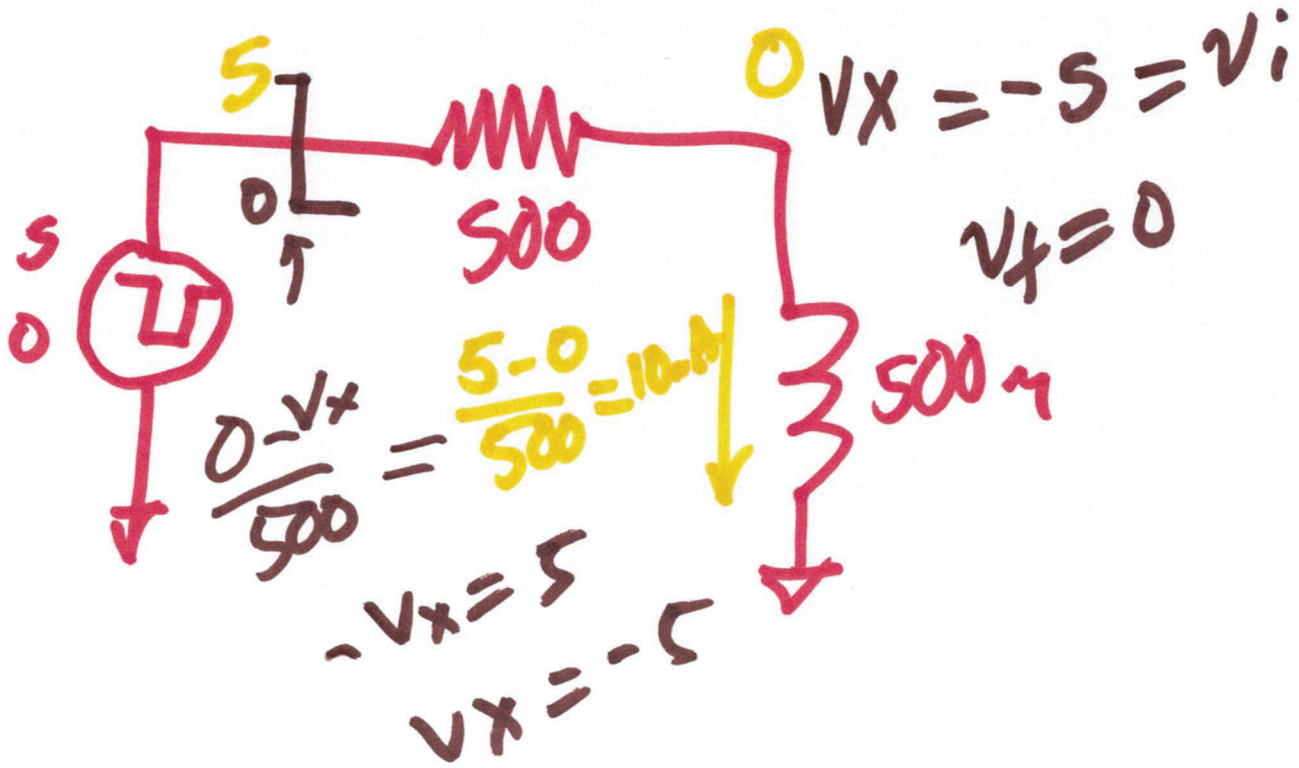 5
0
0
↑
5
0
500
0
Vx = -5 = Vi
Vf = 0
500m
(0 - Vx)/500 = (5 - 0)/500 = 10mA
-Vx = 5
Vx = -5